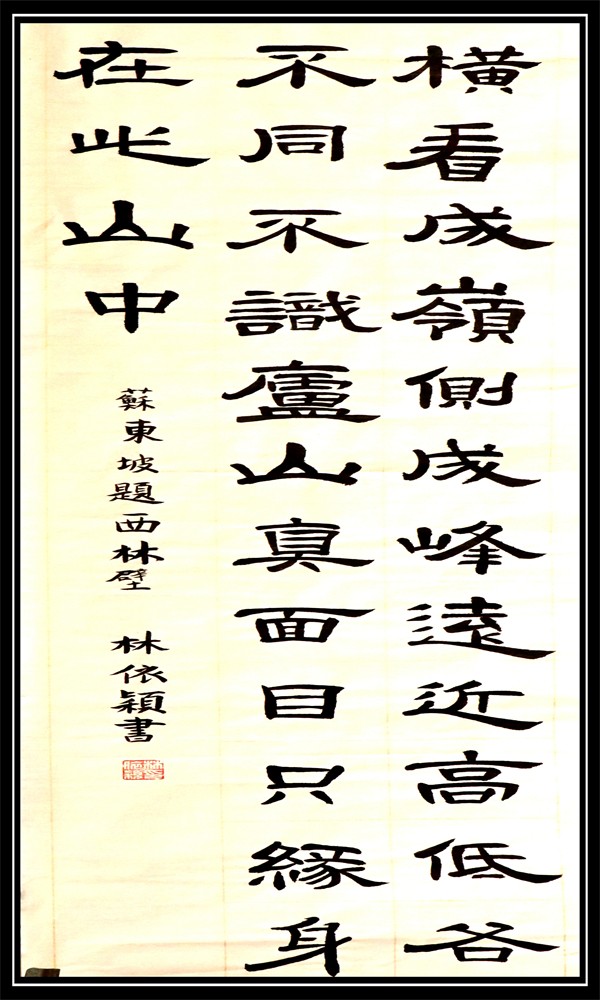 橫看成嶺側成峰遠近高低各
不同不識廬山真面目只緣身
在此山中
蘇東坡題西林壁 林依穎書